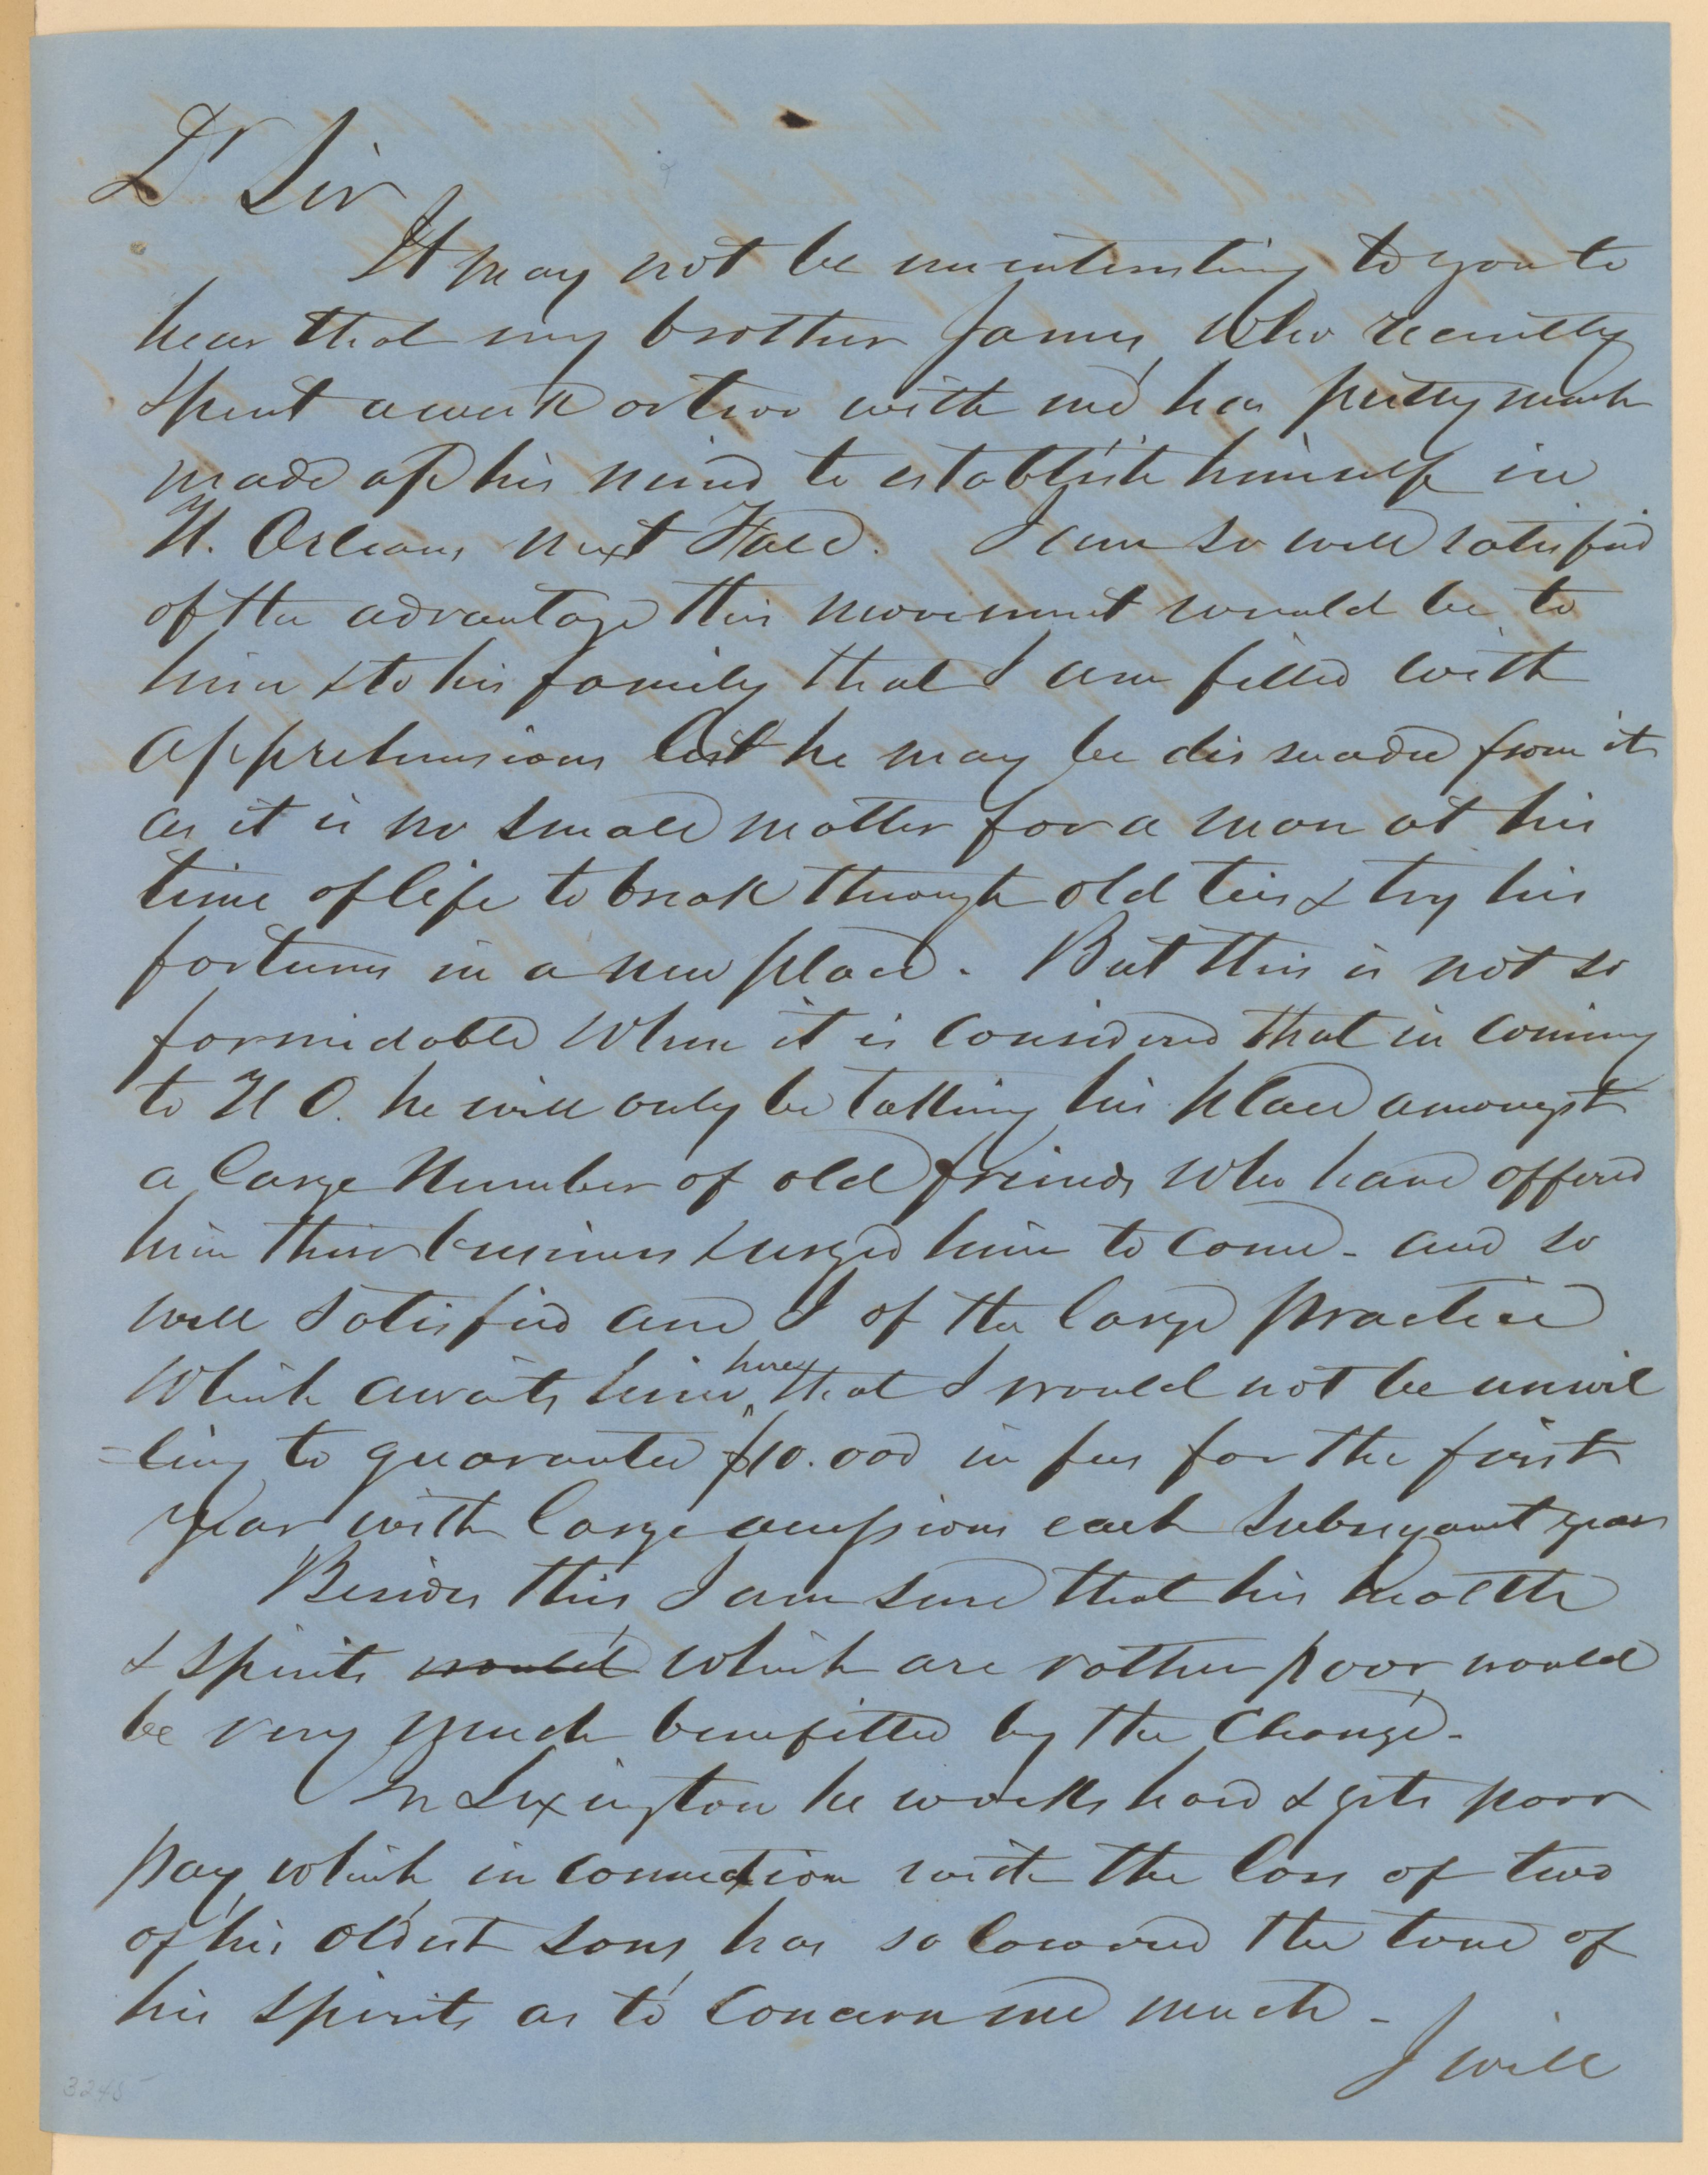 Dr Sir
It may not be uninteresting to you to
hear that my brother James, who recently
spent a week or two with me has pretty much
made up his mind to establish himself in
N. Orleans next Fall. I am so well satisfied
of the advantage this movement would be to
him & to his family that I am filled with
apprehensions lest he may be dissuaded from it
as it is no small matter for a man at his
time of life to break through old ties & try his
fortunes in a new place. But this is not so
formidable when it is considered that in coming
to N O. he will only be taking his place amongst
a large number of old friends who have offered
him their business & urged him to come - and so
well satisfied am I of the large practice
which awaits him here, that I would not be unwil
=ling to guarantee $10.000 in fees for the first
year with large accessions each subsequent year
Besides this I am sure that his health
& spirits would which are rather poor would
be very much benefitted by the change -
In Lexington he works hard & gets poor
pay, which in connection with the loss of two
of his oldest sons, has so lowered the tone of
his spirits as to concern me much -
I will
3245